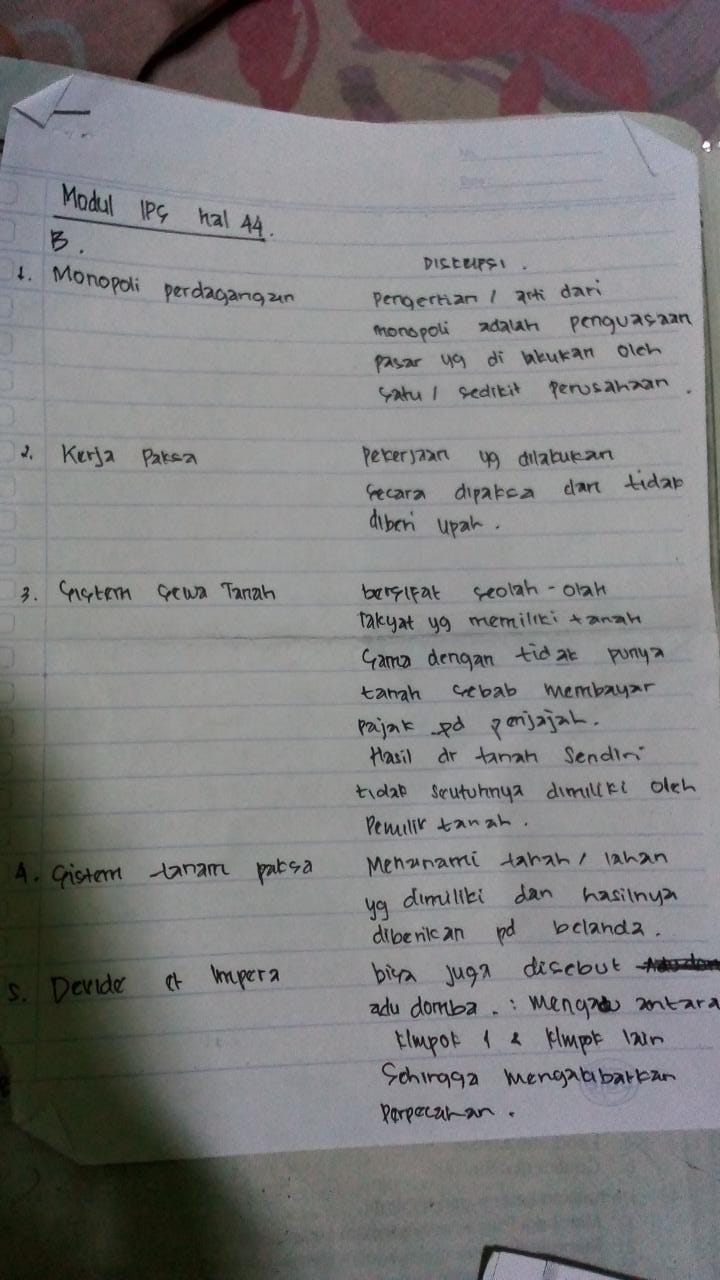 Modul IPS hal 44.
B.
Diskripsi.
1. Monopoli perdagangan
Pengertian / arti dari
monopoli adalah penguasaan
pasar yg di lakukan oleh
satu / sedikit perusahaan.
2. Kerja Paksa
Pekerjaan yg dilakukan
secara dipaksa dan tidak
diberi upah.
3. Sistem Sewa Tanah
bersifat seolah-olah
rakyat yg memiliki tanah
sama dengan tidak punya
tanah sebab membayar
pajak pd penjajah.
Hasil dr tanah sendiri
tidak seutuhnya dimiliki oleh
Pemilik tanah.
4. Sistem tanam paksa
Menanami tanah / lahan
yg dimiliki dan hasilnya
diberikan pd belanda.
5. Devide et Impera
bisa juga disebut
adu domba. : mengadu antara
klmpok 1 & klmpk lain
Sehingga mengakibatkan
perpecahan.